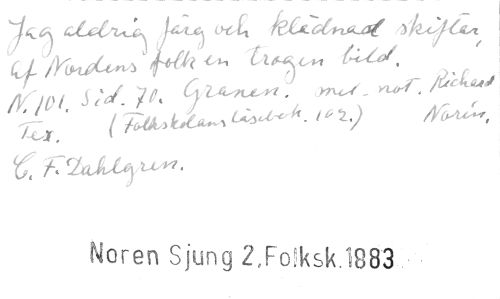 Jag aldrig färg och klädnad skiftar,
af Nordens folk en trogen bild.
N. 101. Sid. 70. Granen. mel. not. Richard
Tex. (Folkskolans läsebok. 102.) Norén.
C. F. Dahlgren.
Noren Sjung 2, Folksk. 1883